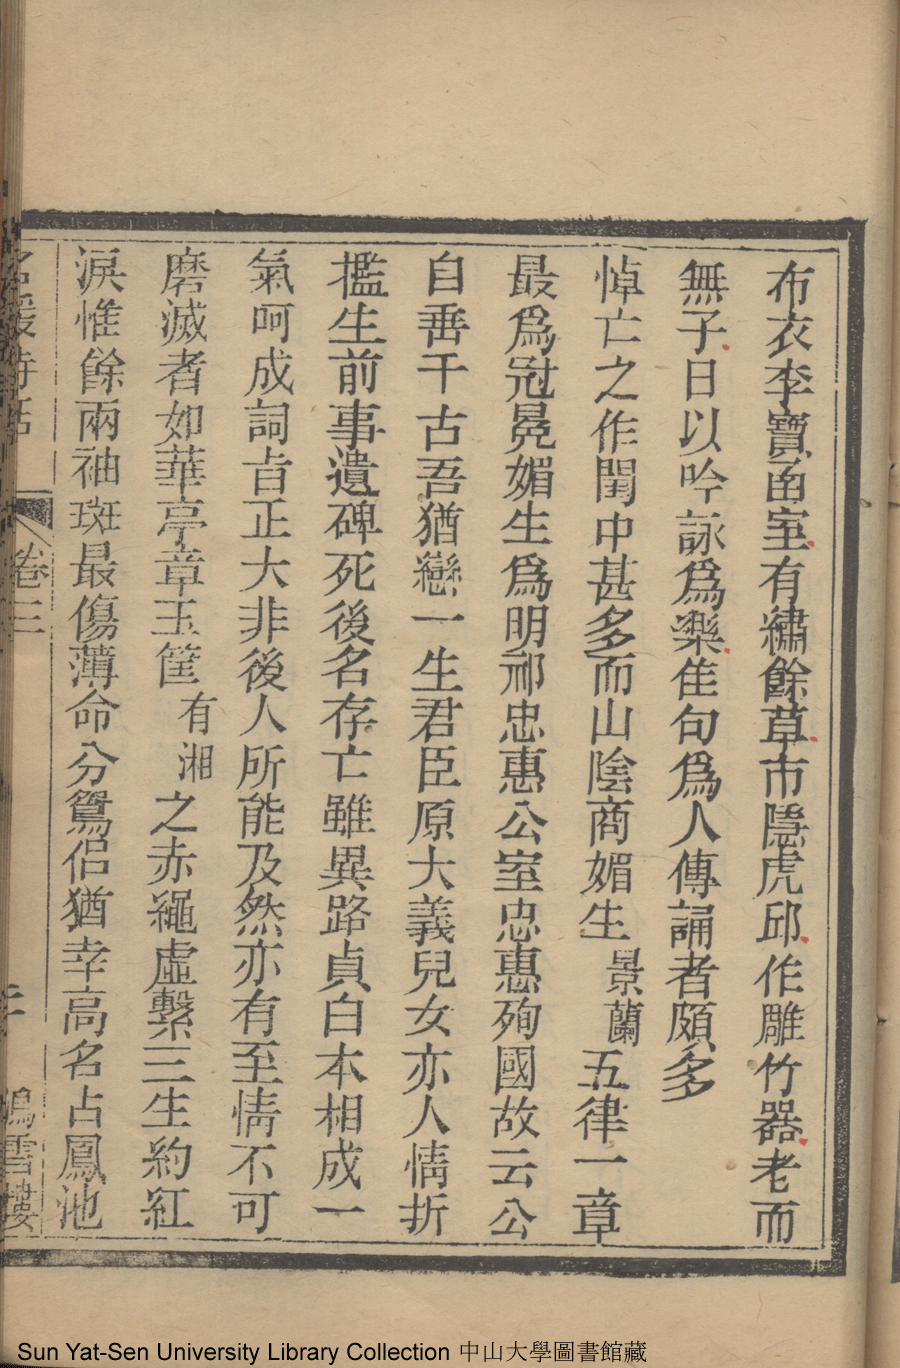 布衣李寶函室有繡餘草市隱虎邱作雕竹器老而
無子日以吟詠爲樂佳句爲人傳誦者頗多
悼亡之作閨中甚多而山陰商媚生景蘭五律一章
最爲冠冕媚生爲明祁忠惠公室忠惠殉國故云公
自垂千古吾猶戀一生君臣原大義兒女亦人情折
檻生前事遺碑死後名存亡雖異路貞白本相成一
氣呵成詞旨正大非後人所能及然亦有至情不可
磨滅者如華亭章玉筐有湘之赤繩虛繫三生約紅
淚惟餘兩袖斑最傷薄命分鴛侶猶幸高名占鳳池
名媛詩話 卷三 二 鴻雪樓
Sun Yat-Sen University Library Collection 中山大學圖書館藏